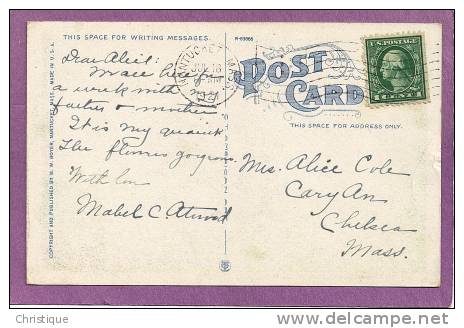 THIS SPACE FOR WRITING MESSAGES.
R-53665
Dear Alice:
here
a week with
father + mother
It is very quaint
The flowers gorgeous
With love
Mabel C. Atwood
COPYRIGHT AND PUBLISHED BY H. M. BOYER, NANTUCKET, MASS. MADE IN U.S.A.
NANTUCKET MASS.
JUL 18
POST CARD
THIS SPACE FOR ADDRESS ONLY.
U.S. POSTAGE
1 CENT 1
Mrs. Alice Cole
Cary Av.
Chelsea
Mass.
Christique
http://www.delcampe.net